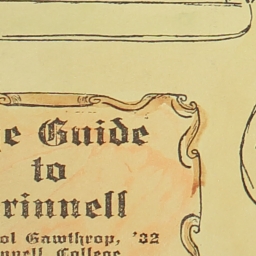 e Guide
to
rinnell
ol Gawthrop, '32
nnell College